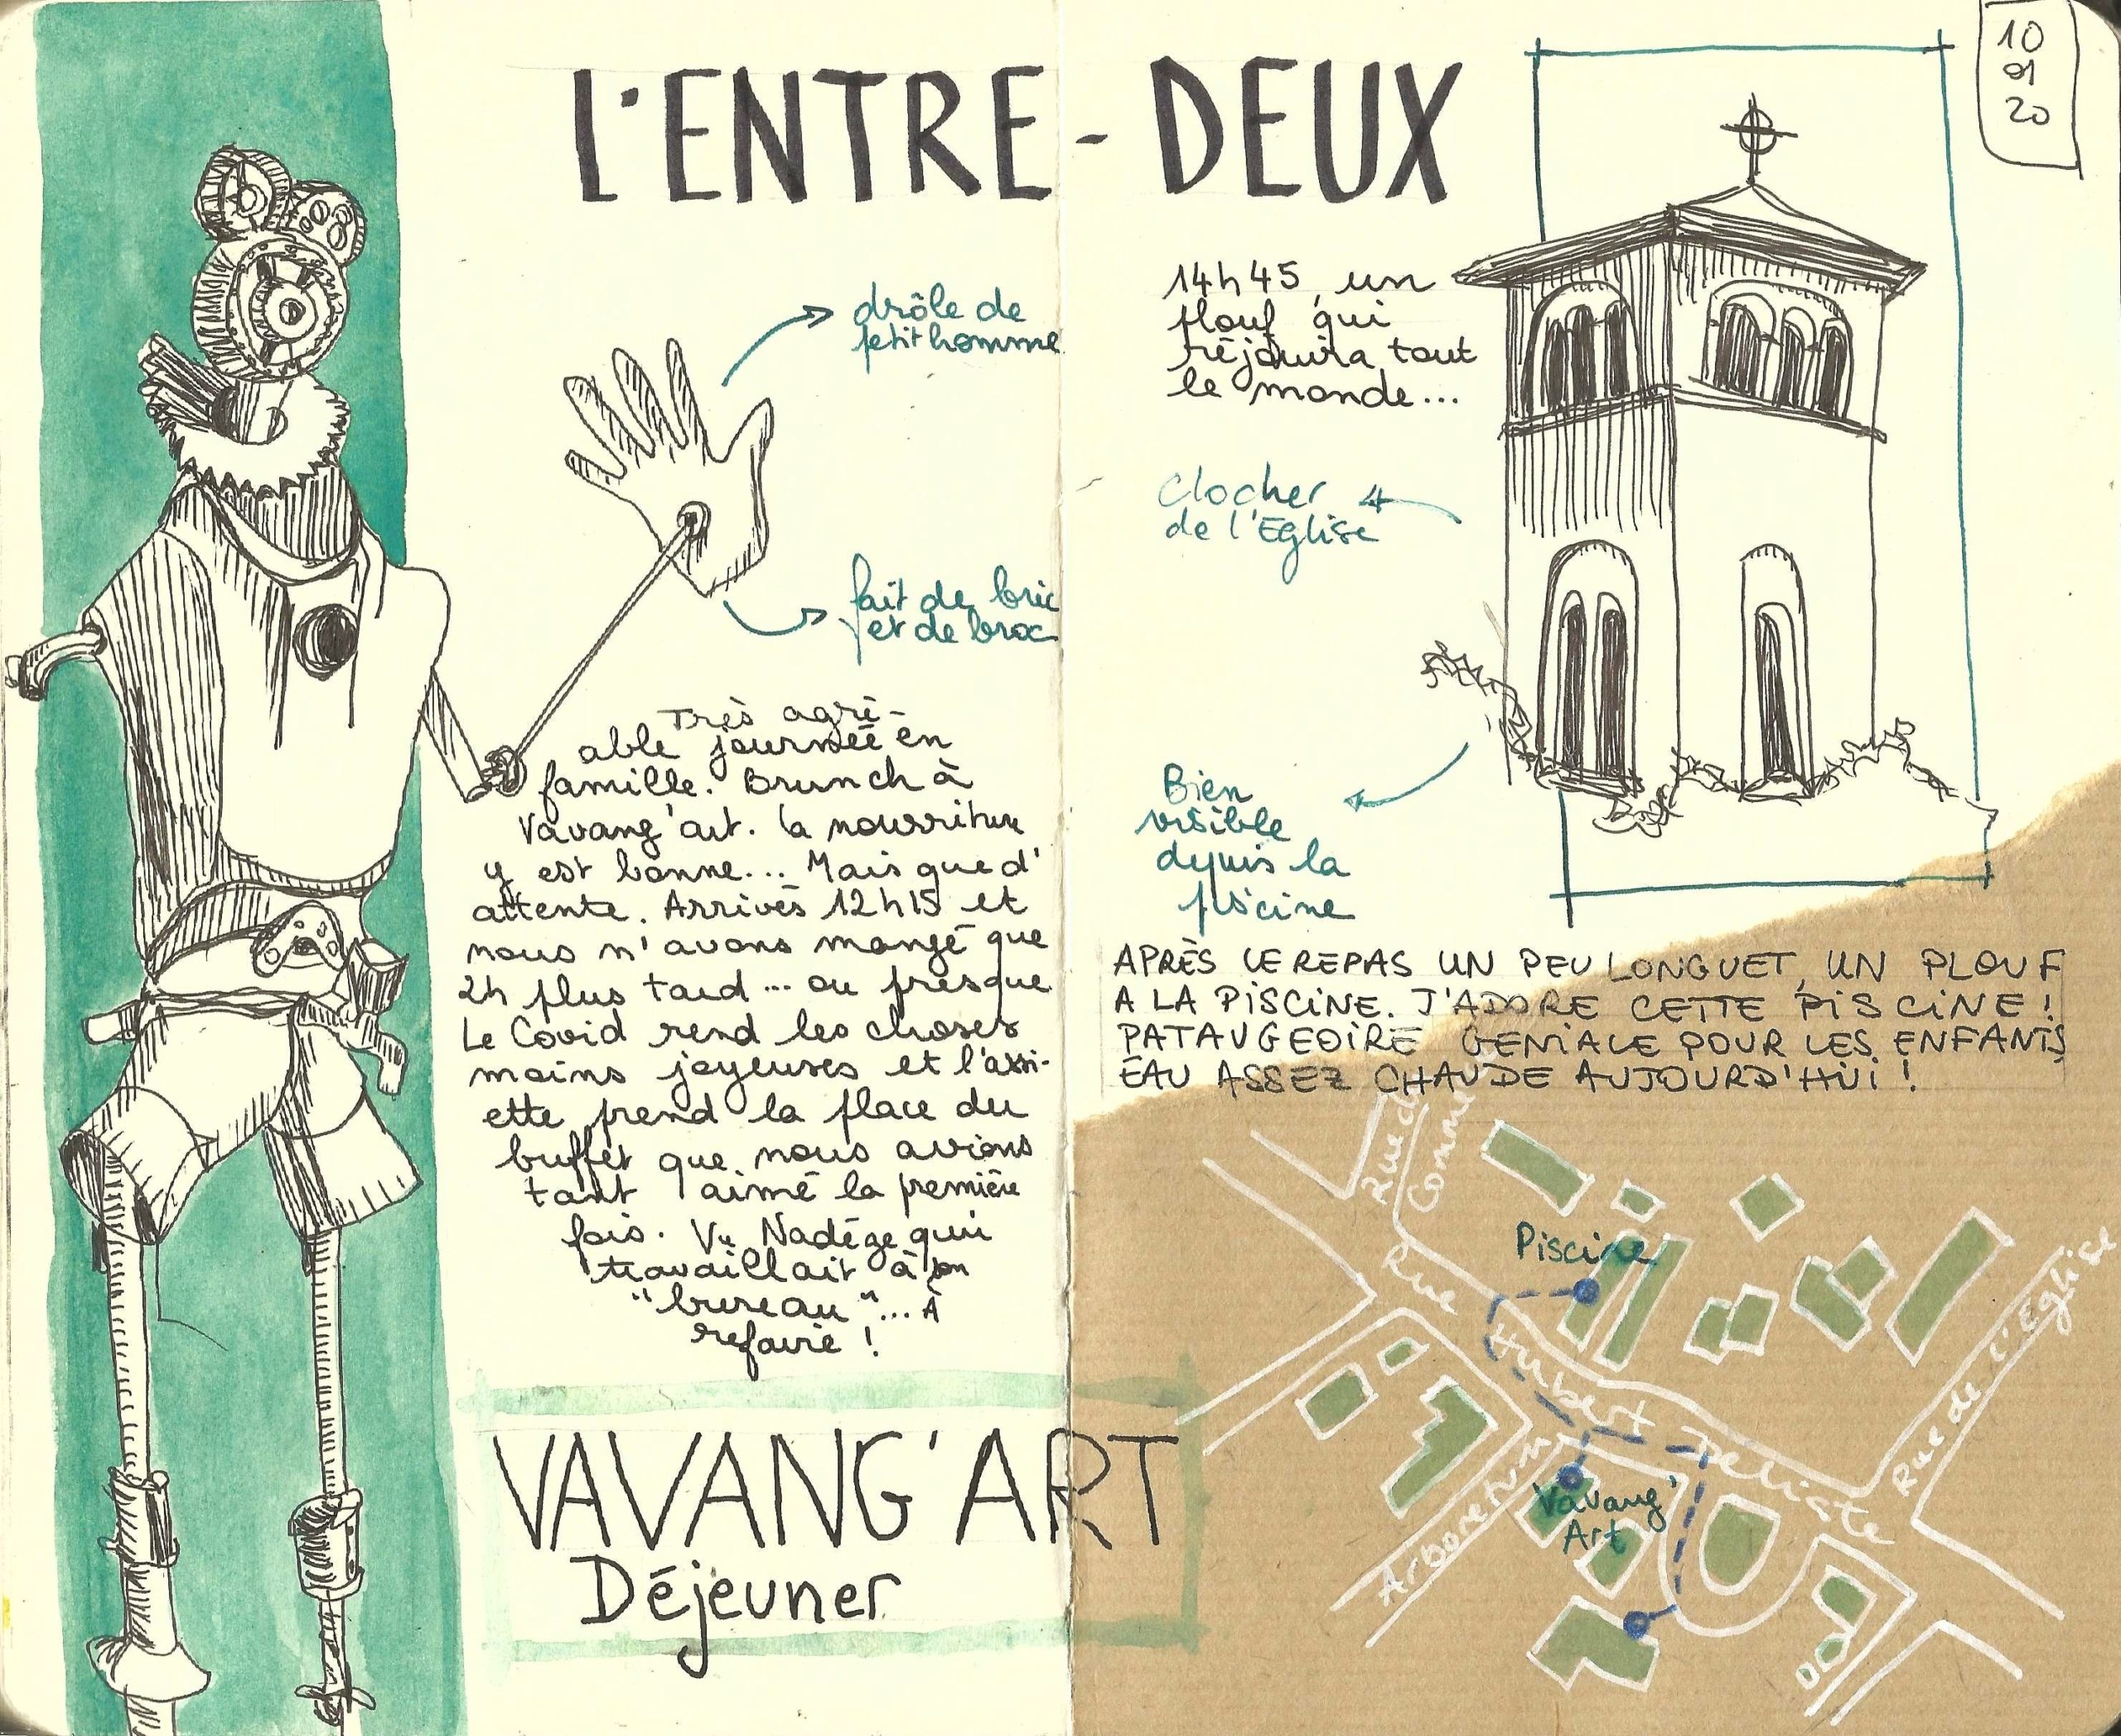 L'ENTRE-DEUX
10
01
20
drôle de
petit homme
fait de bric
et de broc
Très agré-
able journée en
famille. Brunch à
Vavang'art. La nourriture
y est bonne... Mais que d'
attente. Arrivés 12h15 et
nous n'avons mangé que
2h plus tard... ou presque
Le Covid rend les choses
moins joyeuses et l'assi-
ette prend la place du
buffet que nous avions
tant aimé la première
fois. Vu Nadège qui
travaillait à son
"bureau"... À
refaire !
VAVANG'ART
Déjeuner
14h45, un
plouf qui
réjouira tout
le monde...
Clocher
de l'Eglise
Bien
visible
depuis la
piscine
APRÈS LE REPAS UN PEU LONGUET, UN PLOUF
A LA PISCINE. J'ADORE CETTE PISCINE !
PATAUGEOIRE GENIALE POUR LES ENFANTS
EAU ASSEZ CHAUDE AUJOURD'HUI !
Rue de
Comme
Piscine
Rue Hubert Deliste
Rue de l'Eglise
Vavang'
Art
Arboretum